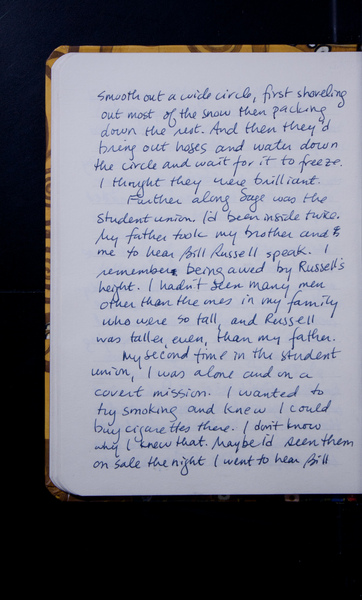 smooth out a wide circle, first shoveling
out most of the snow then packing
down the rest. And then they'd
bring out hoses and water down
the circle and wait for it to freeze.
I thought they were brilliant.
Further along Sage was the
student union. I'd been inside twice.
My father took my brother and
me to hear Bill Russell speak. I
remember being awed by Russell's
height. I hadn't seen many men
other than the ones in my family
who were so tall, and Russell
was taller, even, than my father.
My second time in the student
union, I was alone and on a
covert mission. I wanted to
try smoking and knew I could
buy cigarettes there. I don't know
why I knew that. Maybe I'd seen them
on sale the night I went to hear Bill